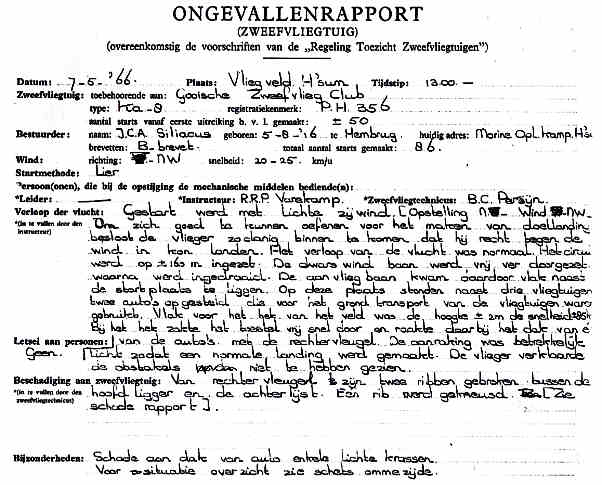 ONGEVALLENRAPPORT
(ZWEEFVLIEGTUIG)
(overeenkomstig de voorschriften van de „Regeling Toezicht Zweefvliegtuigen")
Datum: 7-5-'66. Plaats: Vliegveld H'sum Tijdstip: 13.00.-
Zweefvliegtuig: toebehoorende aan: Gooische Zweefvlieg Club
type: Ka-8 registratiekenmerk: P.H. 356
aantal starts vanaf eerste uitreiking b. v. l. gemaakt: ± 50
Bestuurder: naam: J.C.A. Siliacus geboren: 5-8-'16 te Hembrug. huidig adres: Marine Opl. kamp, H's
brevetten: B-brevet. totaal aantal starts gemaakt: 86.
Wind: richting: NW snelheid: 20-25. km/u
Startmethode: Lier
Persoon(onen), die bij de opstijging de mechanische middelen bediende(n):
*Leider: *Instructeur: R.R.P. Varekamp. *Zweefvliegtechnicus: B.C. Persijn.
Verloop der vlucht: Gestart werd met lichte zijwind. [Opstelling Wind NW.
*(in te vullen door den instructeur) Om zich goed te kunnen oefenen voor het maken van doellanding
besloot de vlieger zodanig binnen te komen dat hij recht tegen de
wind in kon landen. Het verloop van de vlucht was normaal. Het circui
werd op ± 165 m ingezet. De dwars wind baan werd vrij ver doorgezet
waarna werd ingedraaid. De aanvlieg baan kwam daardoor vlak naast
de startplaats te liggen. Op deze plaats stonden naast drie vliegtuigen
twee auto's opgesteld die voor het grond transport van de vliegtuigen ware
gebruikt. Vlak voor het hek van het veld was de hoogte ± 2m de snelheid ±85k
Bij het hek zakte het toestel vrij snel door en raakte daarbij het dak van é
Letsel aan personen: 1 van de auto's. met de rechtervleugel. De aanraking was betrekkelijk
Geen. licht zodat een normale landing werd gemaakt. De vlieger verklaarde
de obstakels niet te hebben gezien.
Beschadiging aan zweefvliegtuig: Van rechter vleugel zijn twee ribben gebroken tussen de
*(in te vullen door den zweefvliegtechnicus) hoofdligger en de achterlijst. Een rib werd gekneusd. Zie
schade rapport ].
Bijzonderheden: Schade aan dak van auto enkele lichte krassen.
Voor situatie overzicht zie schets ommezijde.